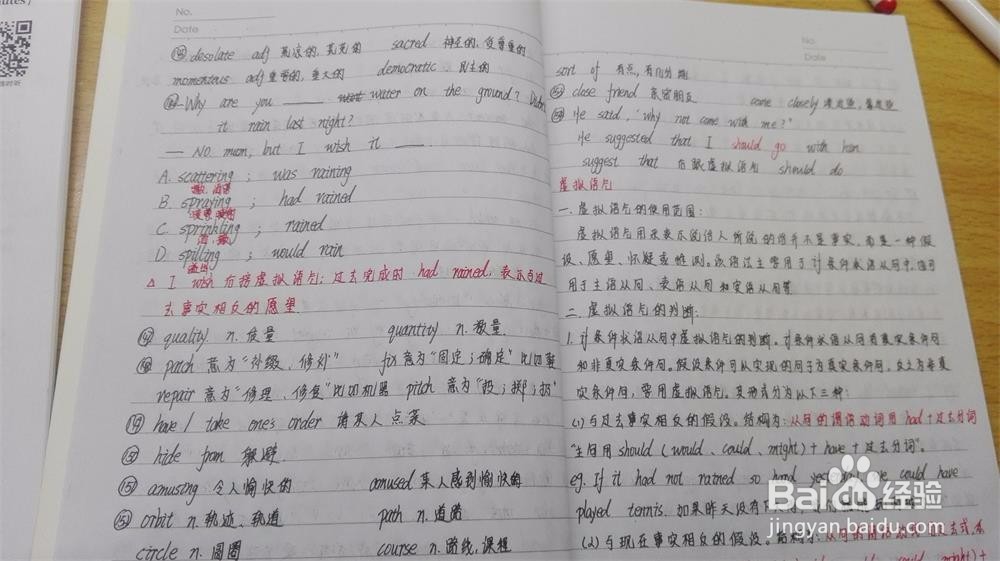 No.
Date
desolate adj 荒凉的, 荒芜的 sacred 神圣的, 受尊重的
momentous adj 重要的, 重大的 democratic 民主的
Why are you ____ water on the ground? Didn't
it rain last night?
— No. mum, but I wish it ___.
A. scattering ; was raining
B. spraying ; had rained
C. sprinkling ; rained
D. spilling ; would rain
溢出
△ I wish 后接虚拟语气; 过去完成时 had rained, 表示与过
去事实相反的愿望
quality n. 质量 quantity n. 数量
patch 意为“补缀、修补” fix 意为“固定;确定” 比如
repair 意为“修理、修复”比如机器 pitch 意为“投;掷;扔”
㊾ have / take one's order 请某人点菜
㊿ hide from 躲避
amusing 令人愉快的 amused 某人感到愉快的
orbit n. 轨迹、轨道 path n. 道路
circle n. 圆圈 course n. 路线, 课程
No.
Date
sort of 有点, 有几分
close friend 亲密朋友 come closely
He said, "Why not come with me?"
He suggested that I should go with him
suggest that 后跟虚拟语气 should do
虚拟语气
一. 虚拟语气的使用范围:
虚拟语气用来表示说话人所说的话并不是事实, 而是一种假
设、愿望、怀疑或推测。该语法主要用于 if 条件状语从句中, 也可
用于主语从句、表语从句和宾语从句等
二. 虚拟语气的判断:
1. if 条件状语从句中虚拟语气的判断. if 条件状语从句有真实条件句
和非真实条件句. 假设条件可以实现的句子为真实条件句, 反之为非真
实条件句, 要用虚拟语气. 其形式分为以下三种:
(1) 与过去事实相反的假设. 结构为: 从句的谓语动词用 had + 过去分词
“主句用 should (would、could、might) + have + 过去分词”.
eg. If it had not rained so hard yesterday, we could have
played tennis. 如果昨天没有
(2) 与现在事实相反的假设. 结构为: 从句的谓语动词用过去式,
Baidu经验
jingyan.baidu.com